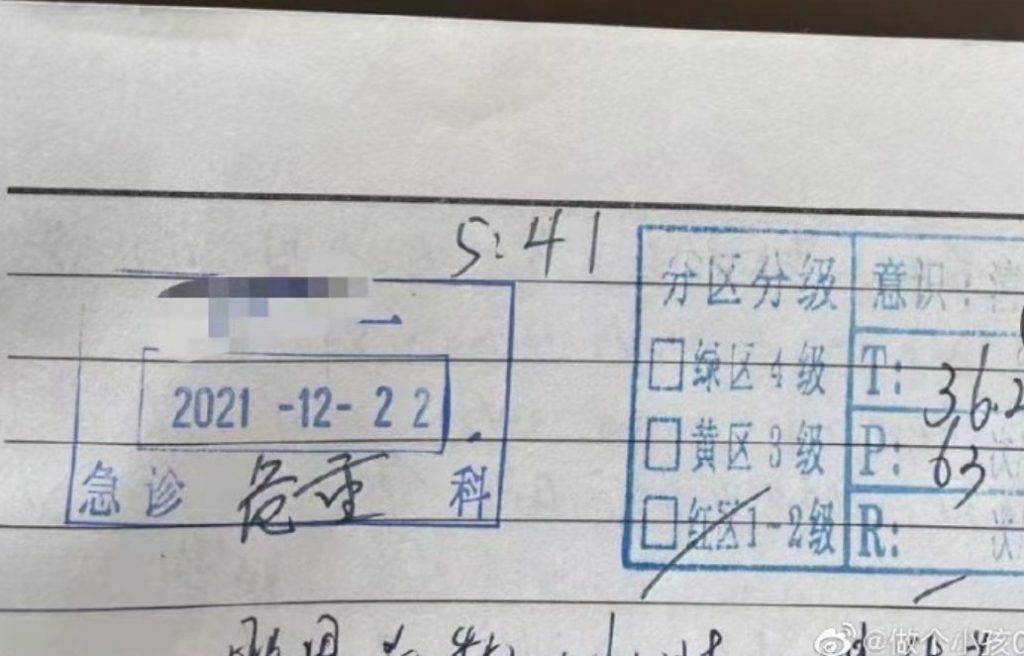 5:41
分区分级 意识:清
2021 -12- 22
□绿区4级 T: 36.2
□黄区3级 P: 63 次
急诊 危重 科
□红区1-2级 R: 次
@做个小孩